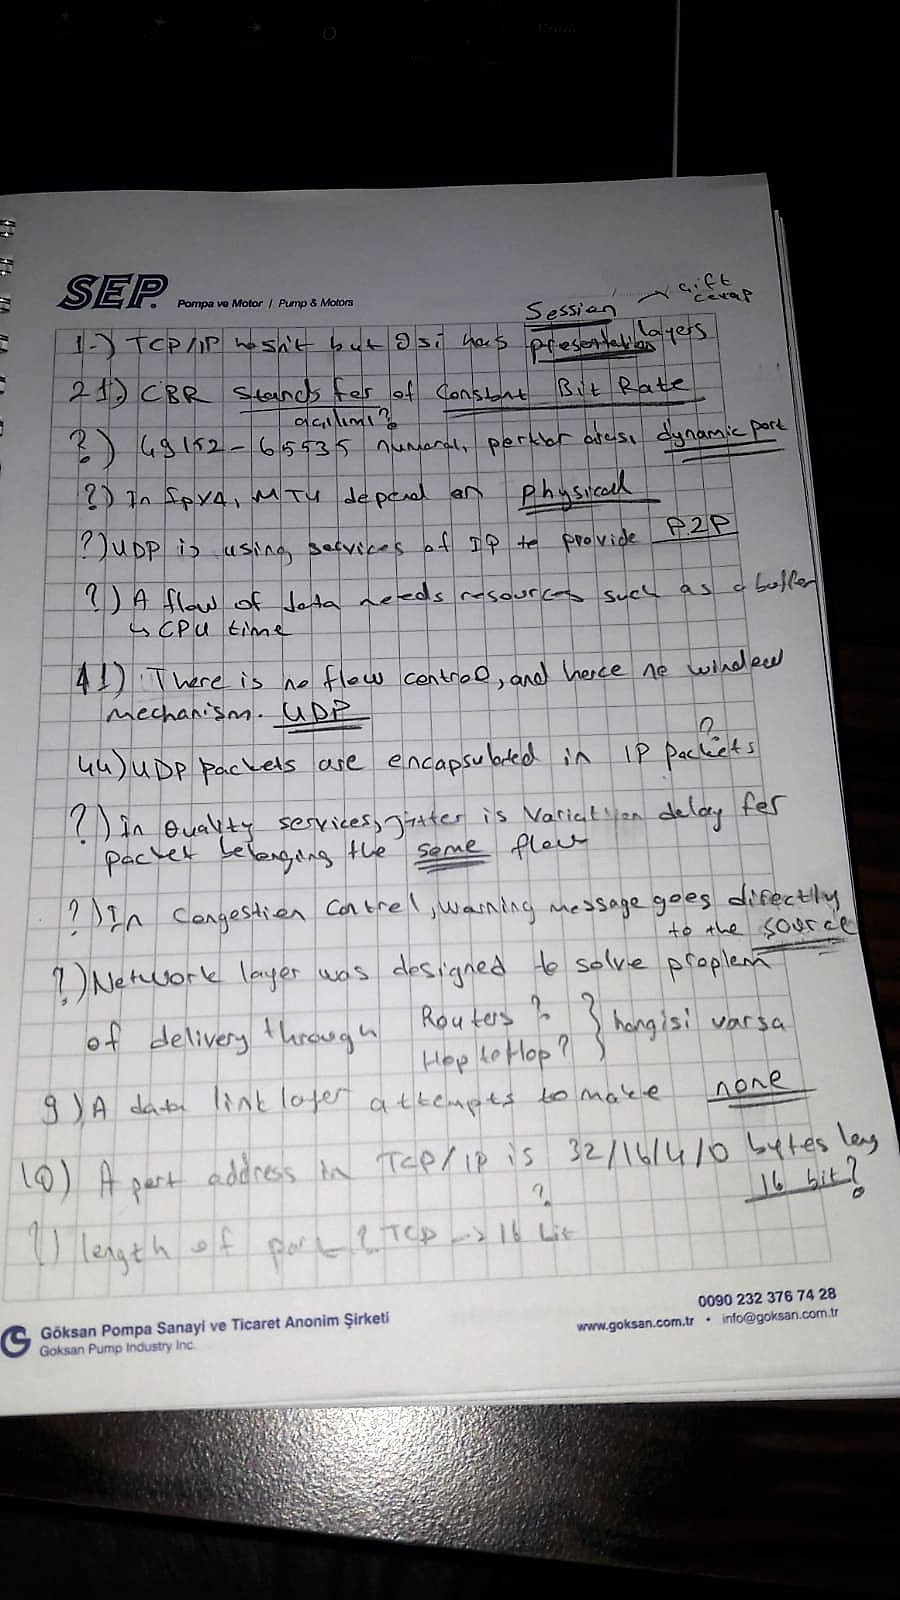 SEP. Pompa ve Motor / Pump & Motors
Session çift cevap
1-) TCP/IP hasn't but Osi has presentation layers
21) CBR stands for of Constant Bit Rate
açılımı?
?) 49152-65535 numaralı portlar arası dynamic port
?) In IpV4, MTU depend on physical
?) UDP is using services of IP to provide P2P
?) A flow of data needs resources such as a buffer
↳ CPU time
41) There is no flow control, and hence no window
mechanism. UDP
?
44) UDP packets are encapsulated in IP packets
?) In Quality services, jitter is variation delay for
packet belonging the same flow
?) In Congestion Control, warning message goes directly
to the source
?) Network layer was designed to solve proplem
of delivery through Routers ? } hangisi varsa
Hop to Hop?
9) A data link layer attempts to make none
10) A port address in TCP/IP is 32/16/4/0 bytes long
? 16 bit?
?) length of port ? TCP -> 16 bit
0090 232 376 74 28
Göksan Pompa Sanayi ve Ticaret Anonim Şirketi www.goksan.com.tr • info@goksan.com.tr
Goksan Pump Industry Inc.